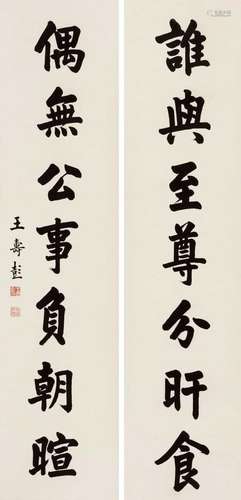 誰與至尊分旰食
偶無公事負朝暄
王壽彭